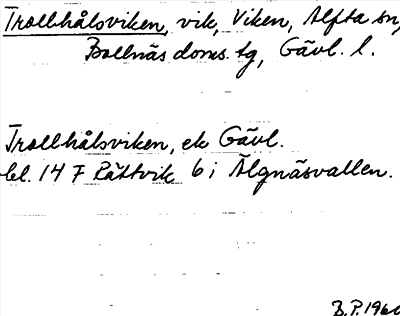 Trollhålsviken, vik, Viken, Alfta sn,
Bollnäs doms. tg, Gävl. l.
Trollhålsviken, ek Gävl.
bl. 14 F Rättvik 6 i Älgnäsvallen.
B.P. 1960